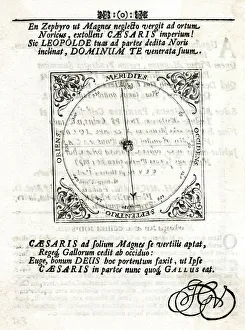 :(o):
En Zephyro ut Magnes neglecto vergit ad ortum
Noricus, extollens CÆSARIS imperium!
Sic LEOPOLDE tuas ad partes dedita Noris
inclinat, DOMINUM TE venerata suum.
MERIDIES
ORIENS
OCCIDENS
SEPTENTRIO
CÆSARIS ad solium Magnes se vertilis aptat,
Regeq́ Gallorum cedit ab occiduo:
Euge, bonum DEUS hoc portentum faxit, ut Ipse
CÆSARIS in partes nunc quoq́ GALLUS eat.